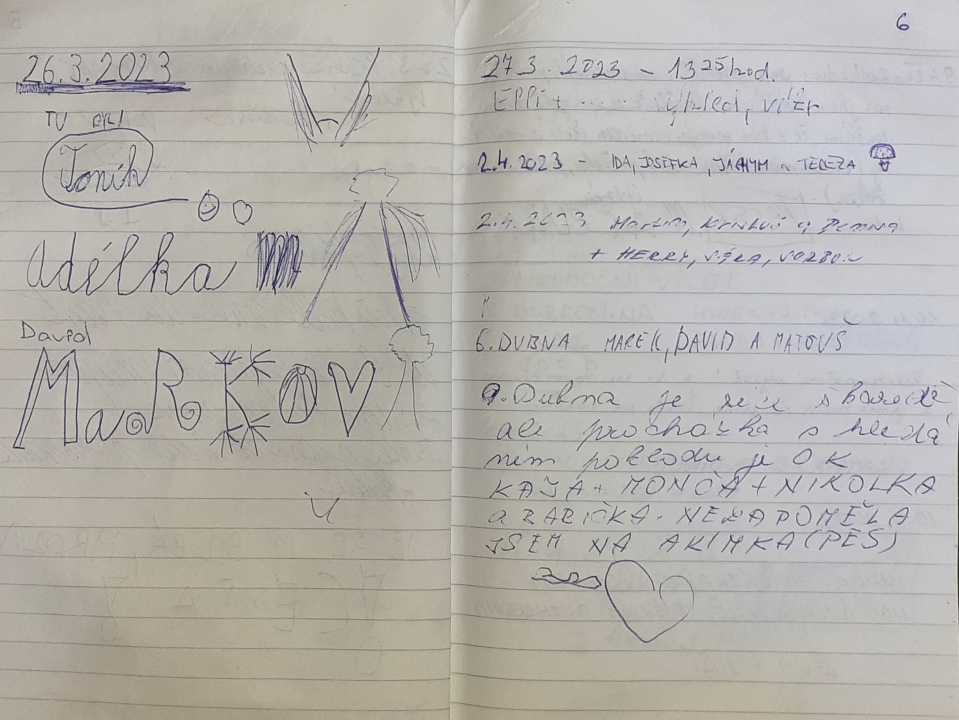 26.3.2023
TU BYLI
Toník
Adélka
David
MaRKOVI
6
27.3.2023 - 13 25 hod.
EPPi + výhled, vítr
2.4.2023 - IDA, JOSEFKA, JÁCHYM a TEREZA
2.4.2023 Martin, a
+ HERRY, VĚRA,
6. DUBNA MAREK, DAVID A MATOUŠ
9. Dubna je sice škaredě
ale procházka s hledá
ním pokladu je OK
KÁJA + MONČA + NIKOLKA
a BABIČKA - NEZAPOMĚLA
JSEM NA AKIMKA (PES)